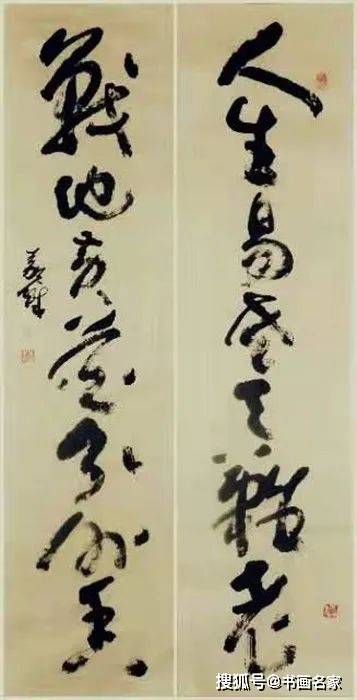 人生易老天難老
戰地黃花分外香
搜狐号@书画名家